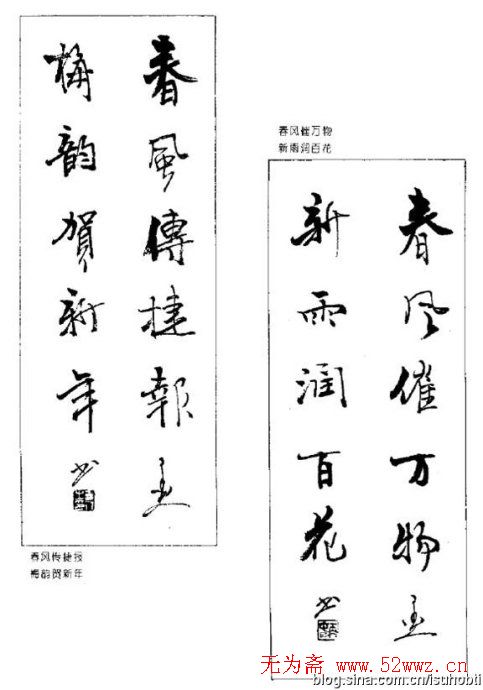 春風傳捷報
梅韵賀新年
春风传捷报
梅韵贺新年
春风催万物
新雨润百花
春风催万物
新雨潤百花
无为斋 www.52wwz.cn
blog.sina.com.cn/isuhobti